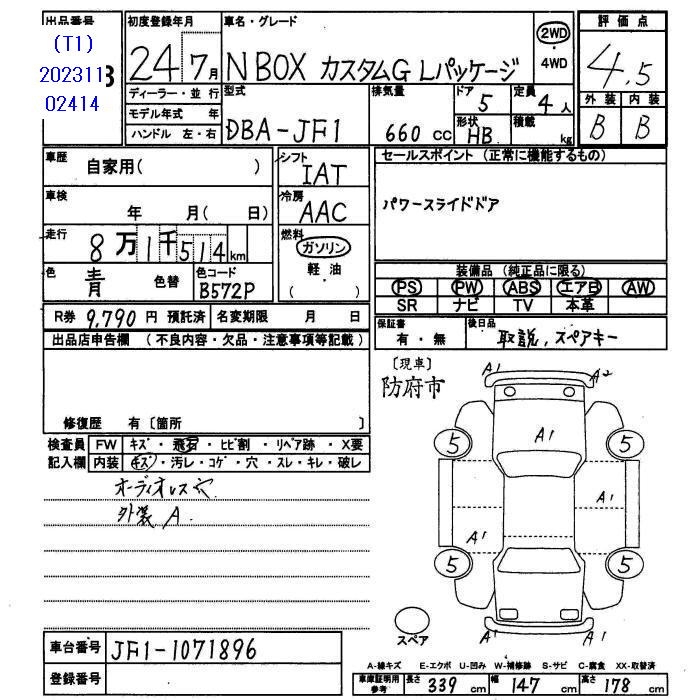 出品番号
(T1)
202311
02414
初度登録年月
24年7月
車名・グレード
N BOX カスタムG Lパッケージ
2WD
・
4WD
評価点
4.5
外装 内装
B B
ディーラー・並行
モデル年式 年
ハンドル 左・右
型式
DBA-JF1
排気量
660 cc
ドア
5
形状
HB
定員
4人
積載
kg
車歴
自家用( )
シフト
IAT
車検
年 月( 日)
冷房
AAC
走行
8万1千514km
燃料
ガソリン
軽油
( )
色
青
色替
色コード
B572P
セールスポイント (正常に機能するもの)
パワースライドドア
装備品 (純正品に限る)
PS PW ABS エアB AW
SR ナビ TV 本革
R券 9,790円 預託済 名変期限 月 日
保証書
有・無
後日品
取説、スペアキー
出品店申告欄 (不良内容・欠品・注意事項等記載)
修復歴 有〔箇所 〕
〔現車〕
防府市
検査員
記入欄
FW キズ・飛石・ヒビ割・リペア跡・X要
内装 キズ・汚レ・コゲ・穴・スレ・キレ・破レ
オーディオレス
外装 A
A1 A2
A1
5 5
A1
A1
5 5
A1 A1
スペア
車台番号 JF1-1071896
登録番号
A-線キズ E-エクボ U-凹み W-補修跡 S-サビ C-腐食 XX-取替済
車庫証明用
参考
長さ 339 cm 幅 147 cm 高さ 178 cm